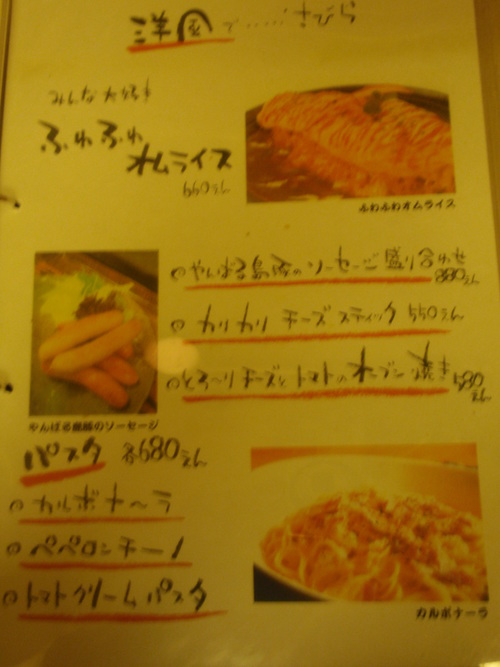 洋風で……さびら
みんな大好き
ふわふわ
オムライス
660えん
ふわふわオムライス
やんばる島豚のソーセージ盛り合わせ
880えん
カリカリ チーズ スティック 550えん
とろ〜りチーズとトマトのオーブン焼き
580えん
やんばる島豚のソーセージ
パスタ 各680えん
カルボナーラ
ペペロンチーノ
トマトクリーム パスタ
カルボナーラ